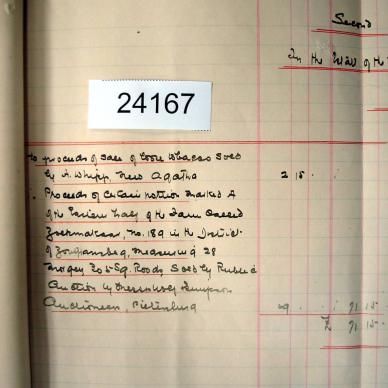 Second
In the Estate of the
24167
To proceeds of sale of loose tobacco sold
by A. Whipp, New Agatha 2 15 .
" Proceeds of certain portion marked A
of the Eastern half of the Farm called
No. 189 in the District
of Zoutpansberg, measuring 28
Morgen 205 Sq. Roods, Sold by Public
Auction by Messrs
Auctioneers, Pietersburg 89 . .
£ 91 15 .